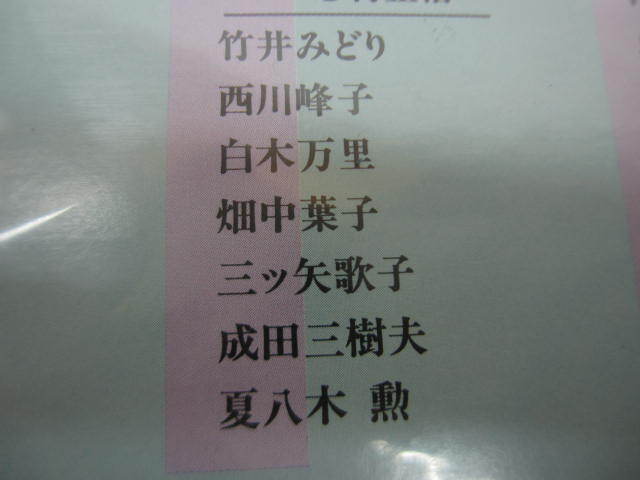 竹井みどり
西川峰子
白木万里
畑中葉子
三ッ矢歌子
成田三樹夫
夏八木 勲